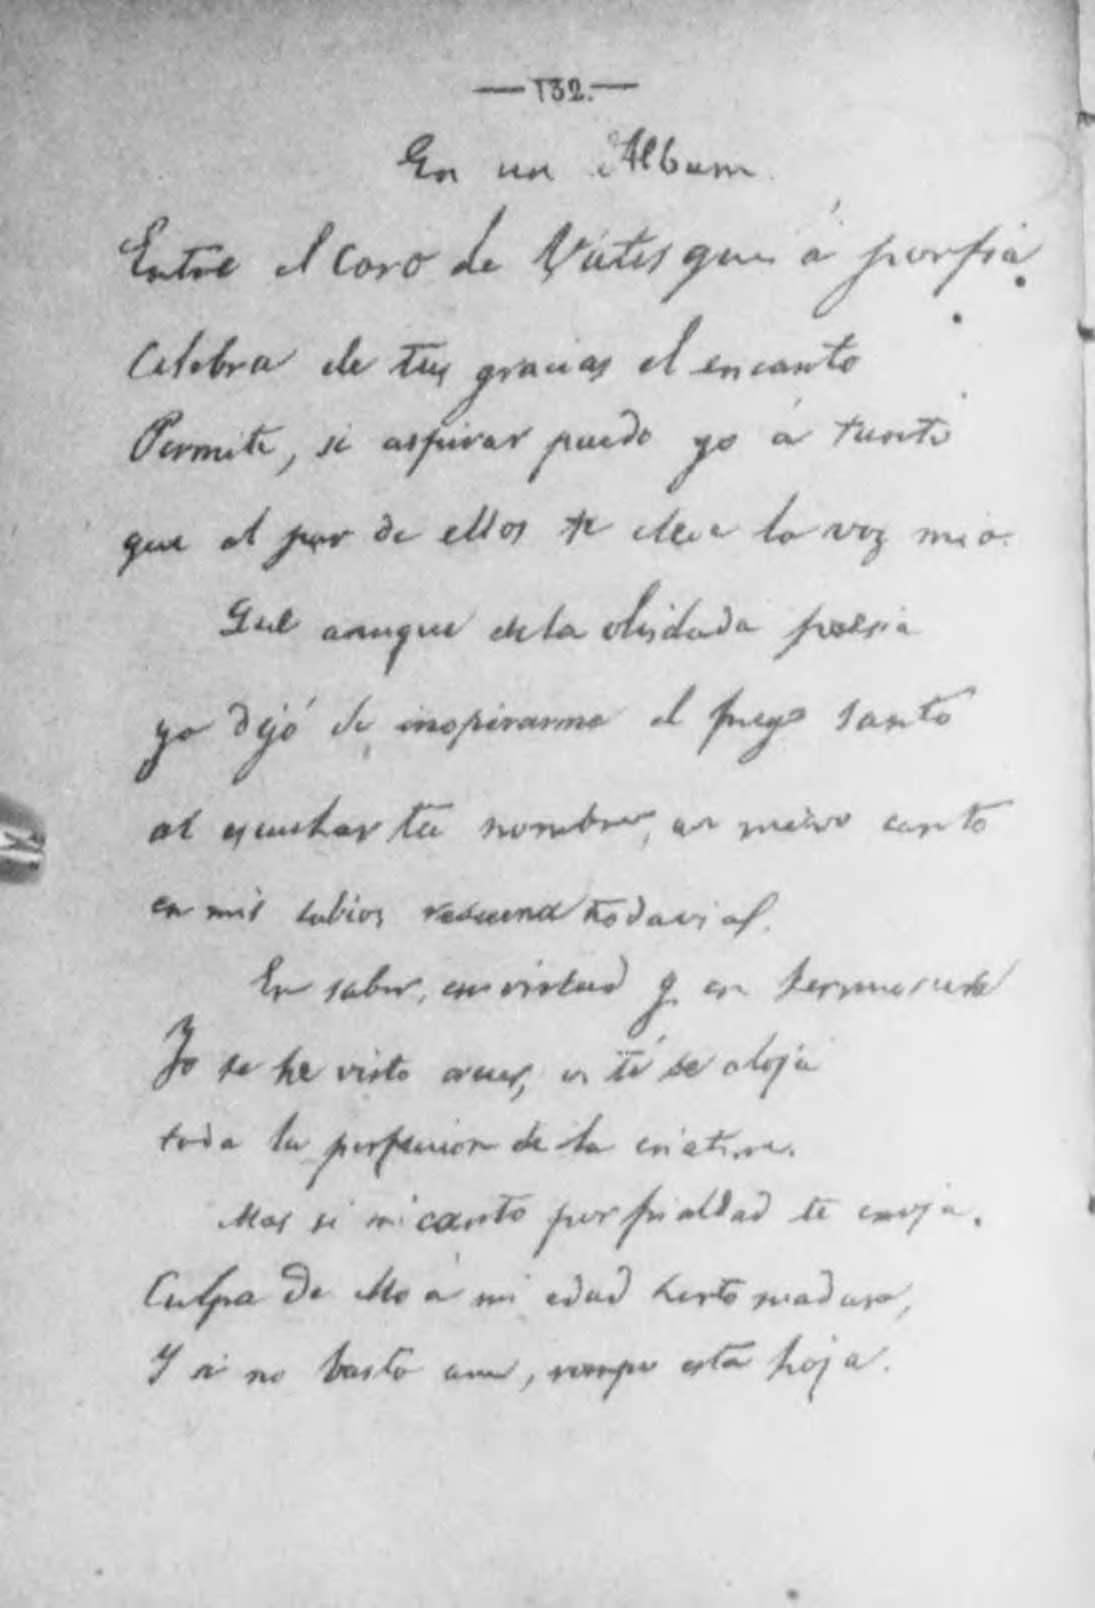 —132.—
En un Album.
Entre el Coro de Vates que á porfia
Celebra de tus gracias el encanto
Permite, si aspirar puedo yo á tanto
que al par de ellos te eleve la voz mia.
Que aunque de la olvidada poesia
ya dejó de inspirarme el fuego santo
al escuchar tu nombre, un nuevo canto
en mis labios resuena todavia.
En saber, en virtud y en hermosura
Yo te he visto crecer, en tí se aloja
toda la perfeccion de la criatura.
Mas si mi canto por frialdad te enoja,
Culpa de ello á mi edad harto madura,
Y si no basta aun, rompe esta hoja.